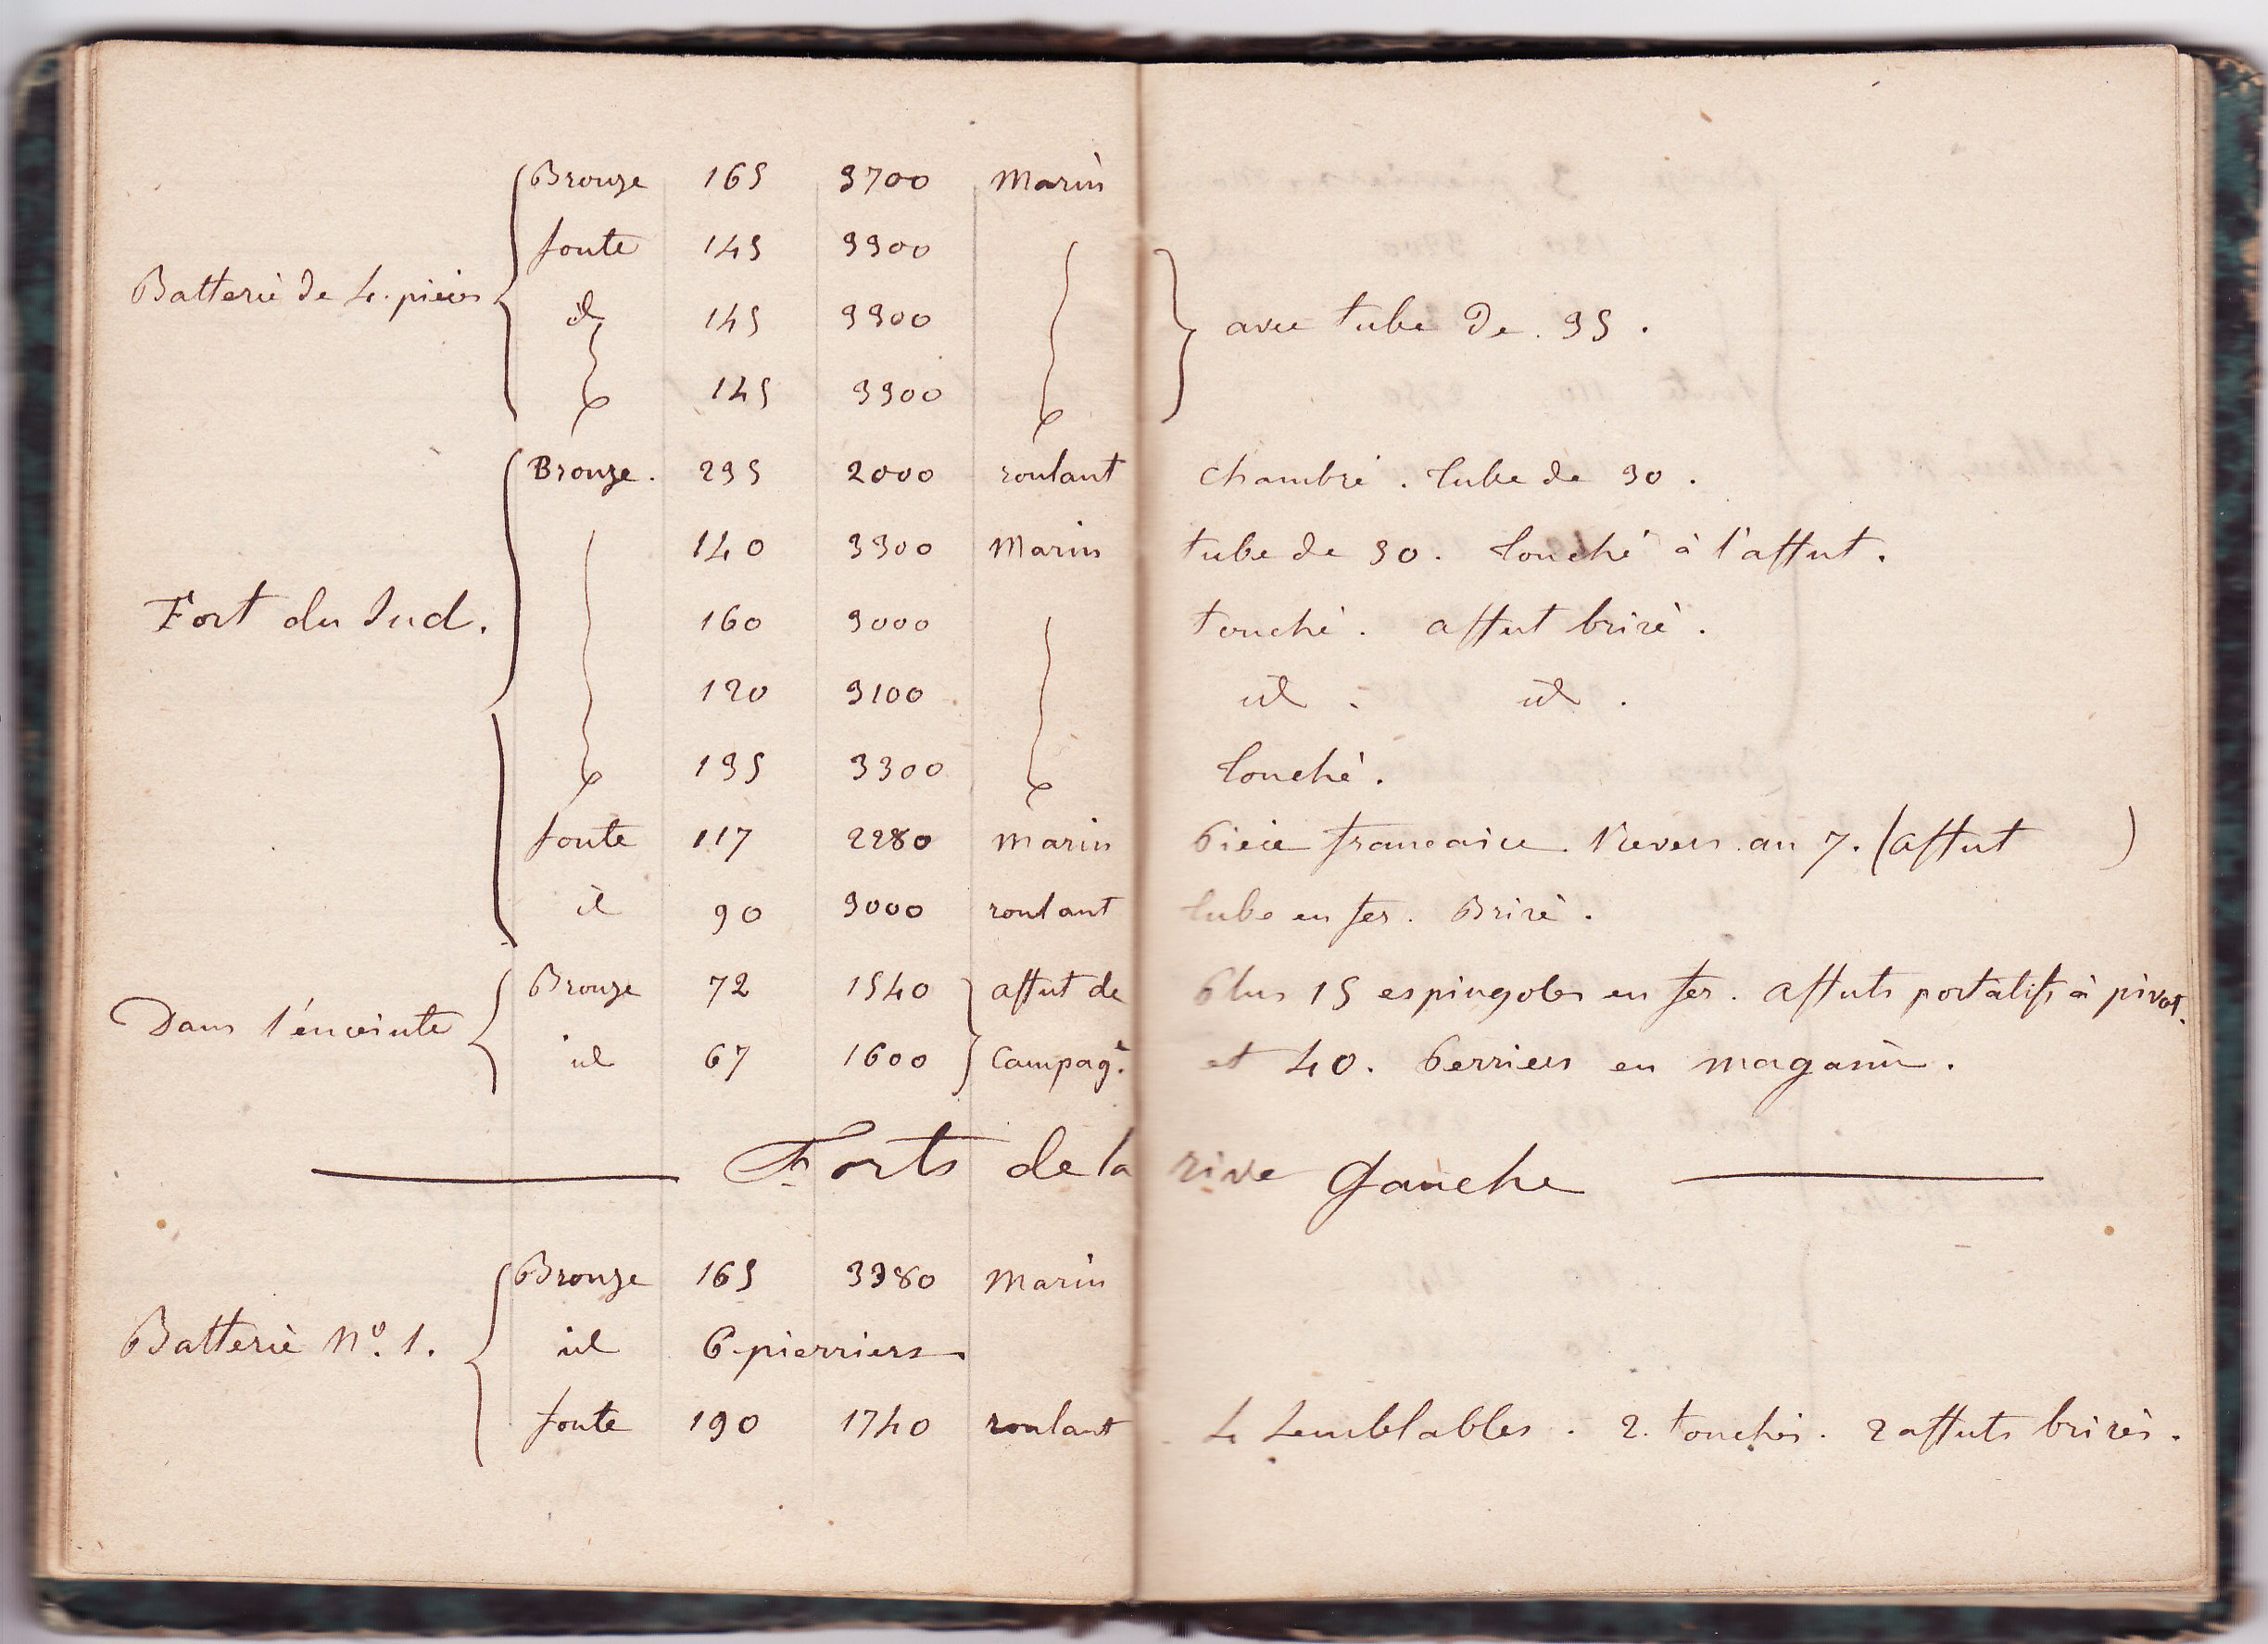 Bronze 165 3700 Marin
fonte 145 3300
Batterie de 4. pièces id 145 3300 avec tube de 35.
145 3300
Bronze. 235 2000 roulant chambré. tube de 30.
140 3300 Marin tube de 30. touché à l'affut.
Fort du Sud. 160 3000 touché. affut brisé.
120 3100 id. id.
135 3300 touché.
fonte 117 2280 marin Pièce française. an 7. (affut )
id 90 3000 roulant tube en fer. Brisé.
Bronze 72 1540 affut de Plus 15 espingoles en fer. affuts portatifs à pivot.
Dans l'enceinte id 67 1600 Campagᵉ. et 40. Perriers en magasin.
Forts de la rive Gauche
Bronze 165 3380 Marin
Batterie Nº. 1. id 6. pierriers.
fonte 190 1740 roulant 4 semblables. 2. touchés. 2 affuts brisés.